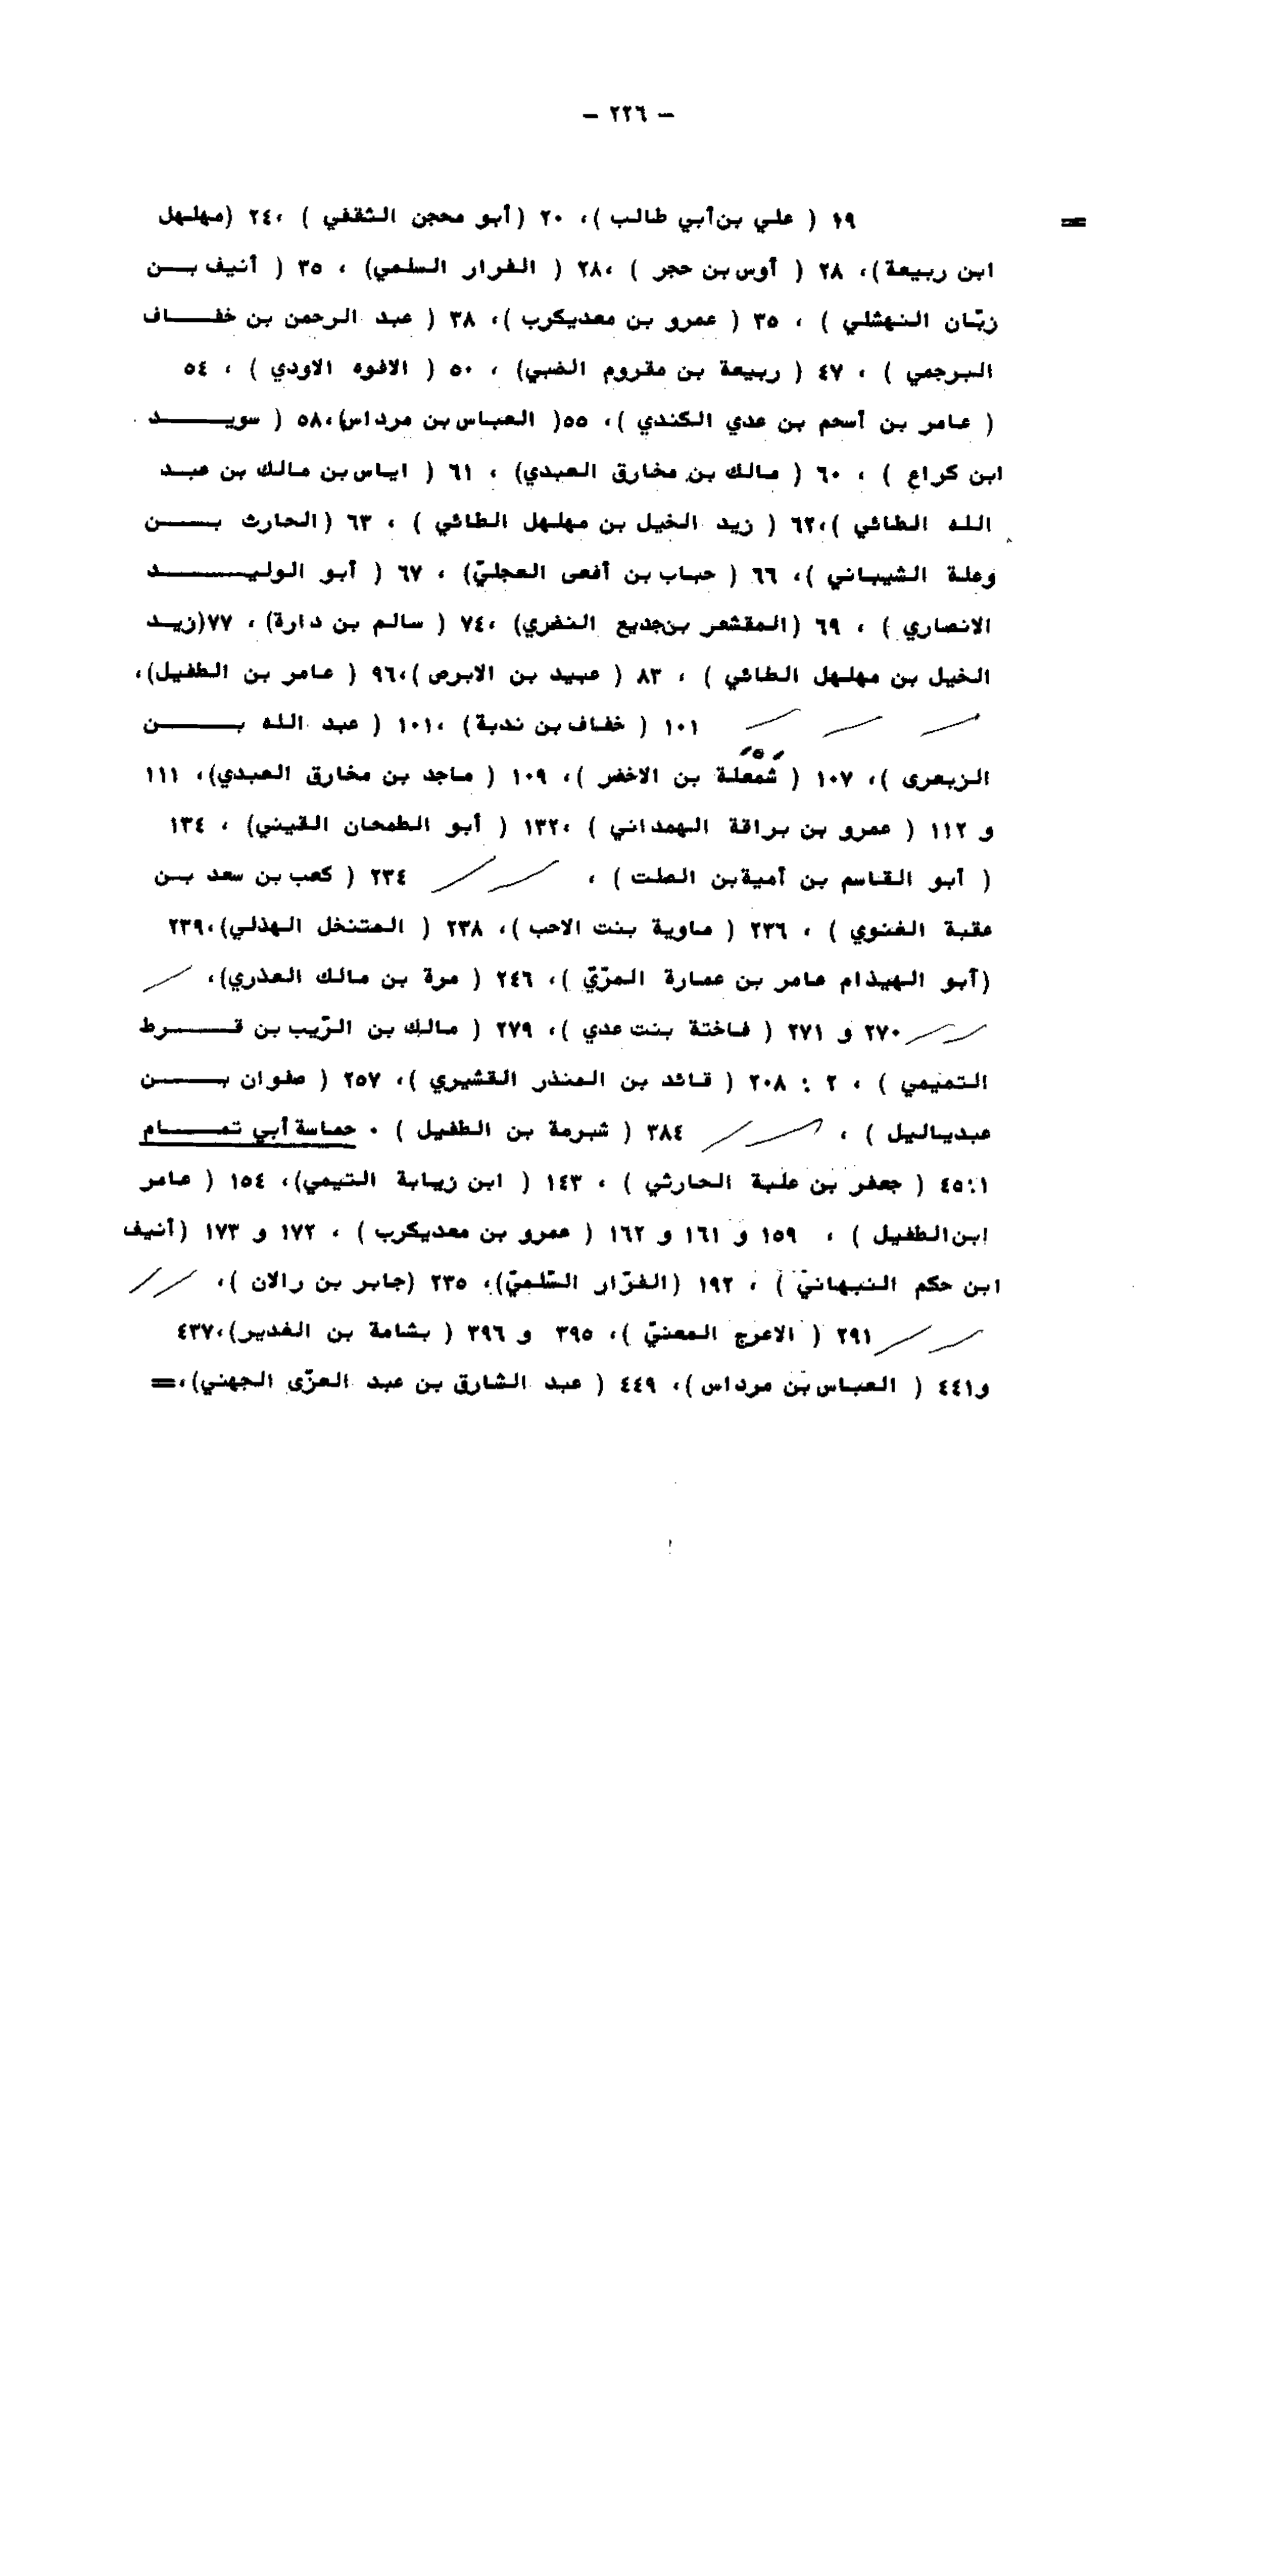 - ٢٢٦ -
= ١٩ ( علي بن أبي طالب )، ٢٠ ( أبو محجن الثقفي ) ،٢٤ (مهلهل
ابن ربيعة)، ٢٨ ( أوس بن حجر ) ،٢٨ ( الفرار السلمي) ، ٣٥ ( أنيف بـــن
زبّان النهشلي ) ، ٣٥ ( عمرو بن معديكرب )، ٣٨ ( عبد الرحمن بن خفـــاف
البرجمي ) ، ٤٧ ( ربيعة بن مقروم الضبي) ، ٥٠ ( الافوه الاودي ) ، ٥٤
( عامر بن أسحم بن عدي الكندي )، ٥٥( العباس بن مرداس)،٥٨ ( سويـــد
ابن كراع ) ، ٦٠ ( مالك بن مخارق العبدي) ، ٦١ ( اياس بن مالك بن عبد
الله الطائي )،٦٢ ( زيد الخيل بن مهلهل الطائي ) ، ٦٣ (الحارث بـــن
وعلة الشيباني )، ٦٦ ( حباب بن أفعى العجليّ) ، ٦٧ ( أبو الوليـــد
الانصاري ) ، ٦٩ (المقشعر بن جديع النفري) ،٧٤ ( سالم بن دارة) ، ٧٧(زيد
الخيل بن مهلهل الطائي ) ، ٨٣ ( عبيد بن الابرص )،٩٦ ( عامر بن الطفيل)،
١٠١ ( خفاف بن ندبة) ،١٠١ ( عبد الله بـــن
الزبعرى )، ١٠٧ ( شَمْعَلة بن الاخضر )، ١٠٩ ( ماجد بن مخارق العبدي)، ١١١
و ١١٢ ( عمرو بن براقة الهمداني ) ،١٣٢ ( أبو الطمحان القيني) ، ١٣٤
( أبو القاسم بن أمية بن الصلت ) ، ٢٣٤ ( كعب بن سعد بـن
عقبة الغنوي ) ، ٢٣٦ ( ماوية بنت الاحب )، ٢٣٨ ( المتنخل الهذلي)،٢٣٩
(أبو الهيذام عامر بن عمارة المرّيّ )، ٢٤٦ ( مرة بن مالك العذري)،
٢٧٠ و ٢٧١ ( فاختة بنت عدي )، ٢٧٩ ( مالك بن الرّيب بن قـــرط
التميمي ) ، ٢ : ٢٠٨ ( قائد بن المنذر القشيري )، ٢٥٧ ( صفوان بـــن
عبدياليل ) ، ٣٨٤ ( شبرمة بن الطفيل ) . حماسة أبي تمـــام
٤٥:١ ( جعفر بن علبة الحارثي ) ، ١٤٣ ( ابن زيابة التيمي)، ١٥٤ ( عامر
ابن الطفيل ) ، ١٥٩ و ١٦١ و ١٦٢ ( عمرو بن معديكرب ) ، ١٧٢ و ١٧٣ (أنيف
ابن حكم النبهانيّ ) ، ١٩٢ (الفرّار السّلميّ)، ٢٣٥ (جابر بن رالان )،
٢٩١ ( الاعرج المعنيّ )، ٣٩٥ و ٣٩٦ ( بشامة بن الغدير)،٤٣٧
و٤٤١ ( العباس بن مرداس )، ٤٤٩ ( عبد الشارق بن عبد العزّى الجهني)،=